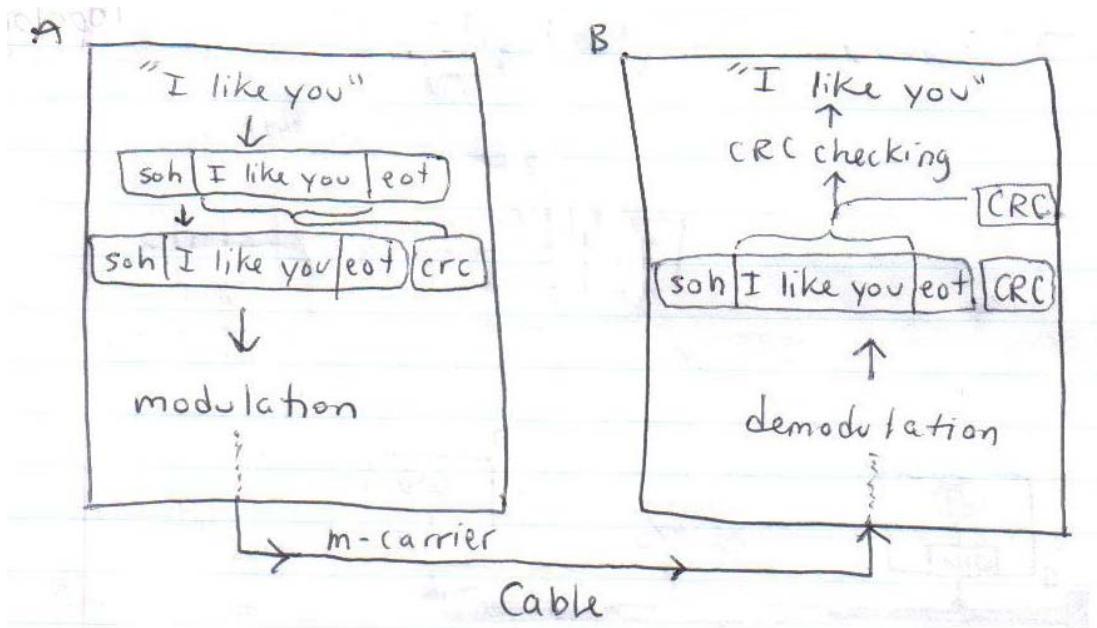 A
"I like you"
soh I like you eot
soh I like you eot crc
modulation
B
"I like you"
CRC checking
CRC
soh I like you eot CRC
demodulation
m-carrier
Cable